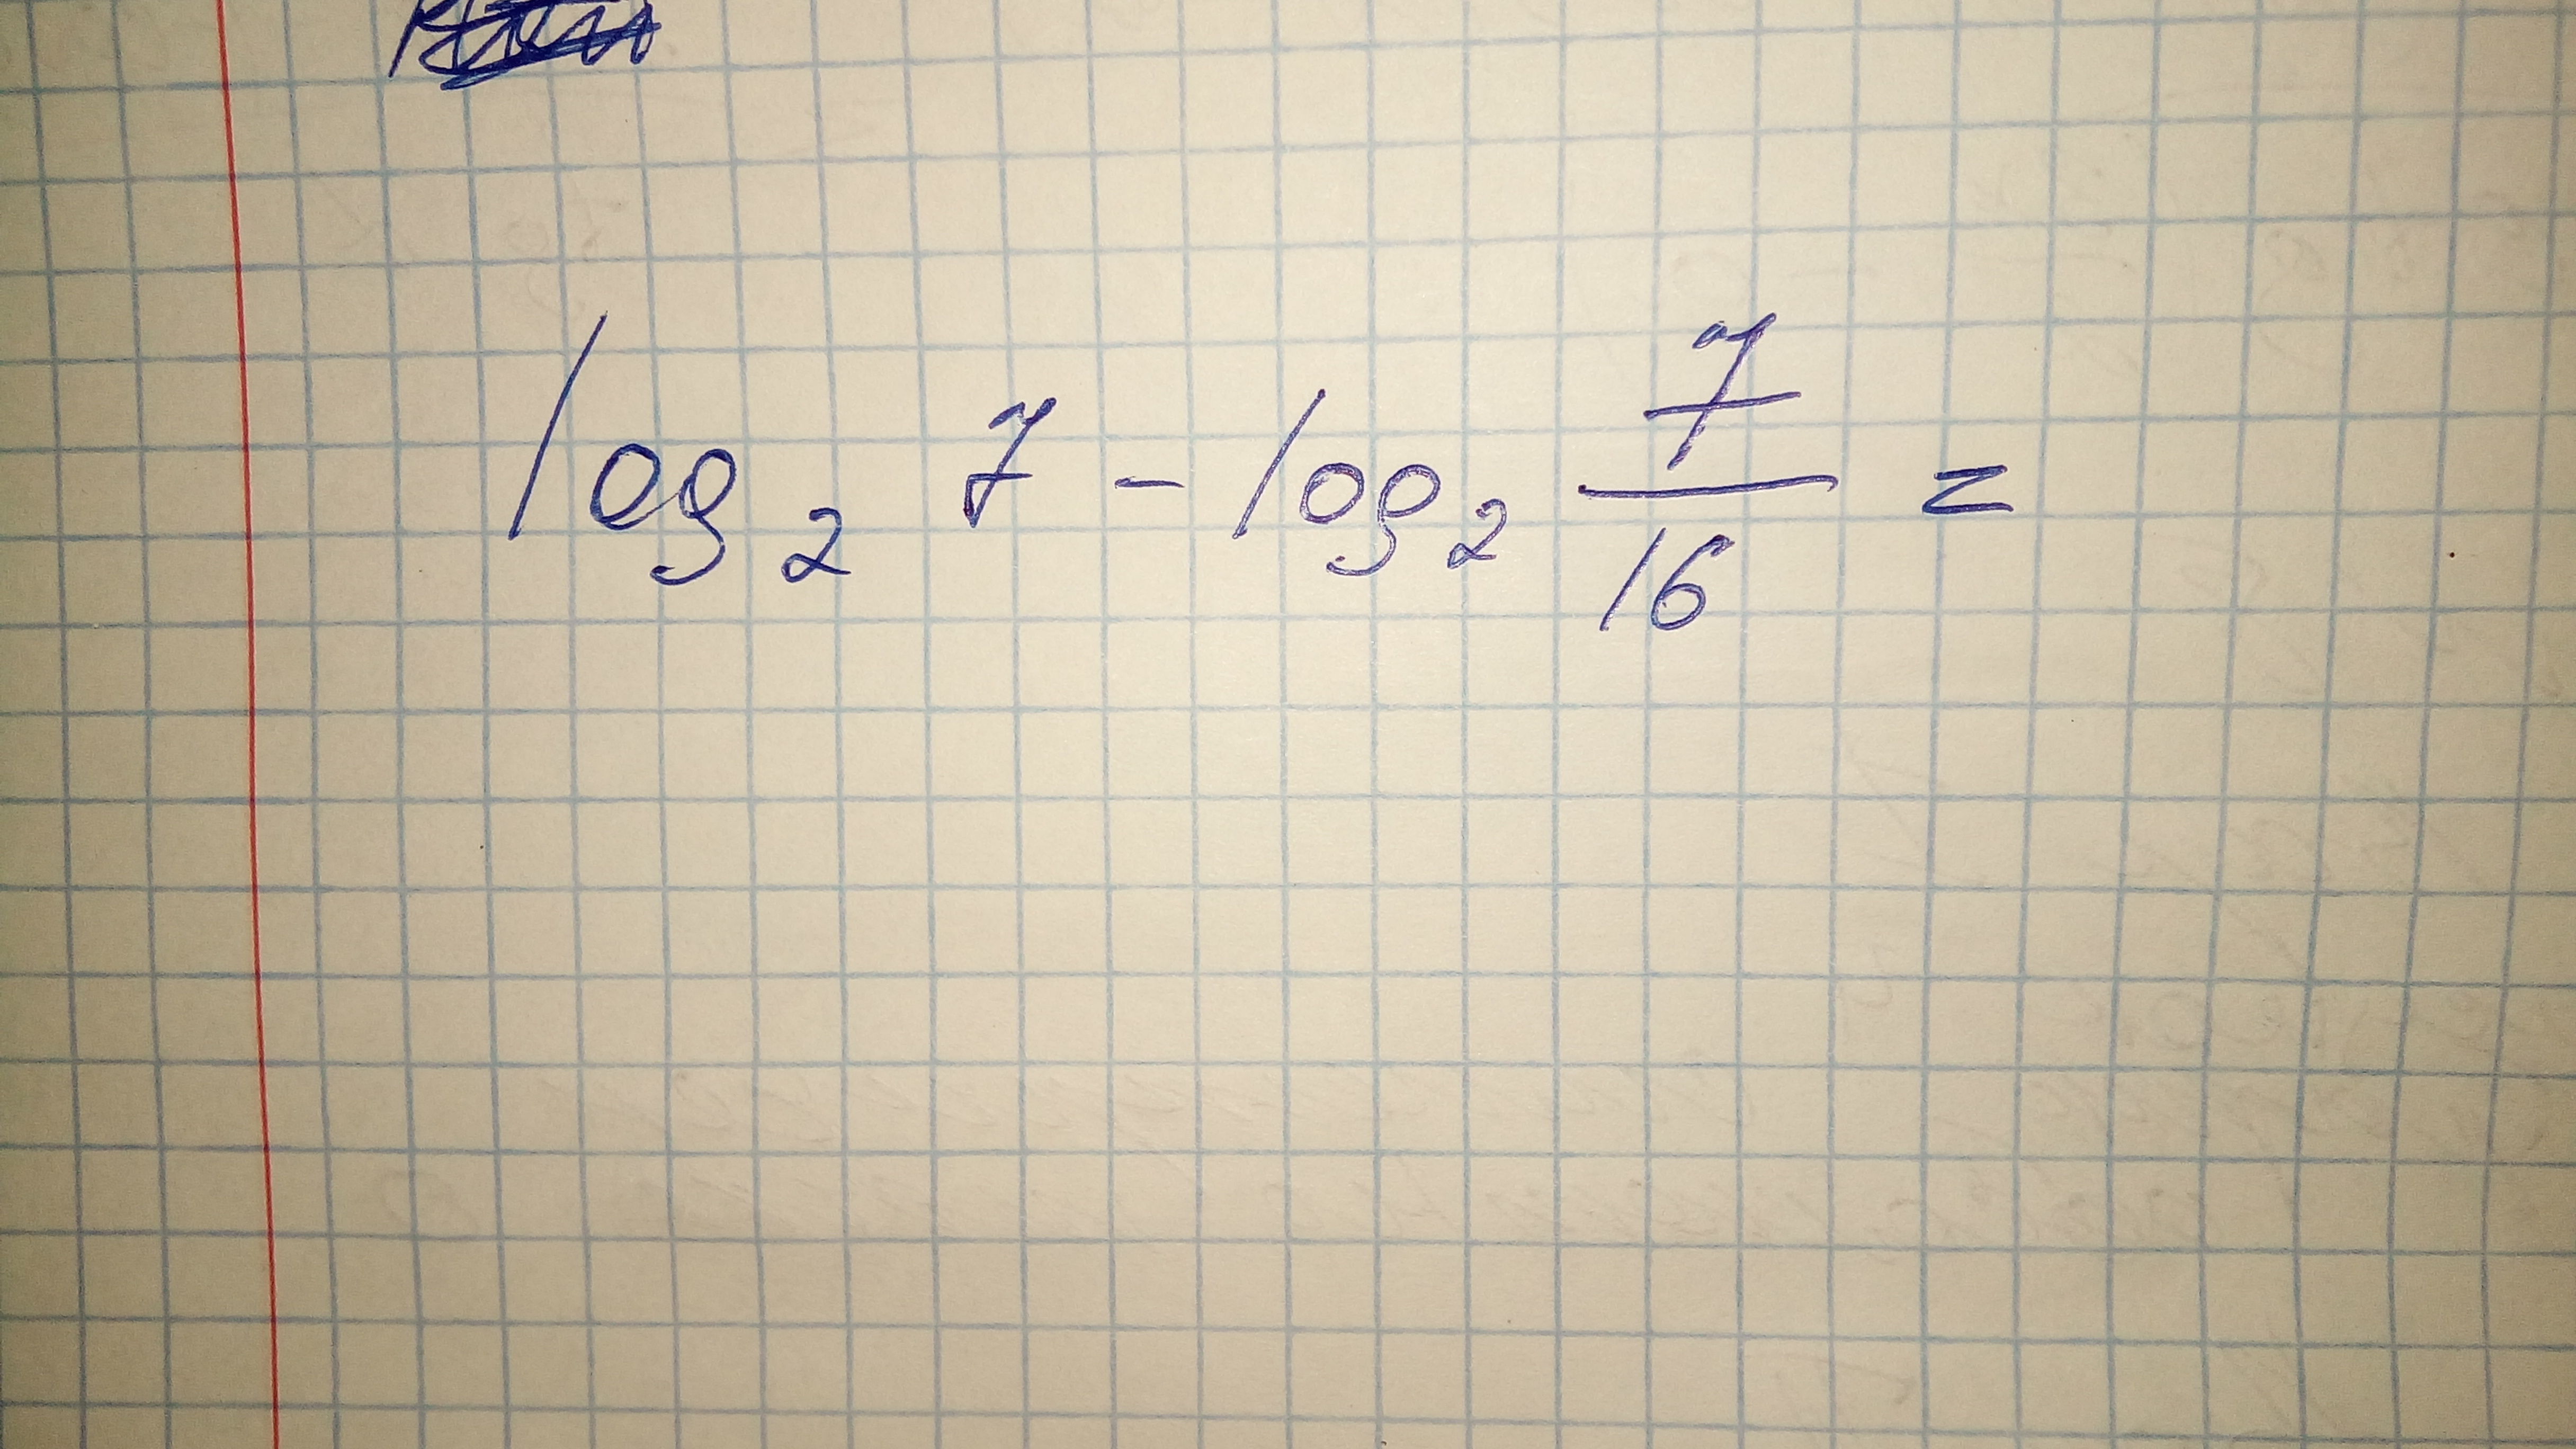 log₂ 7 - log₂ 7/16 =